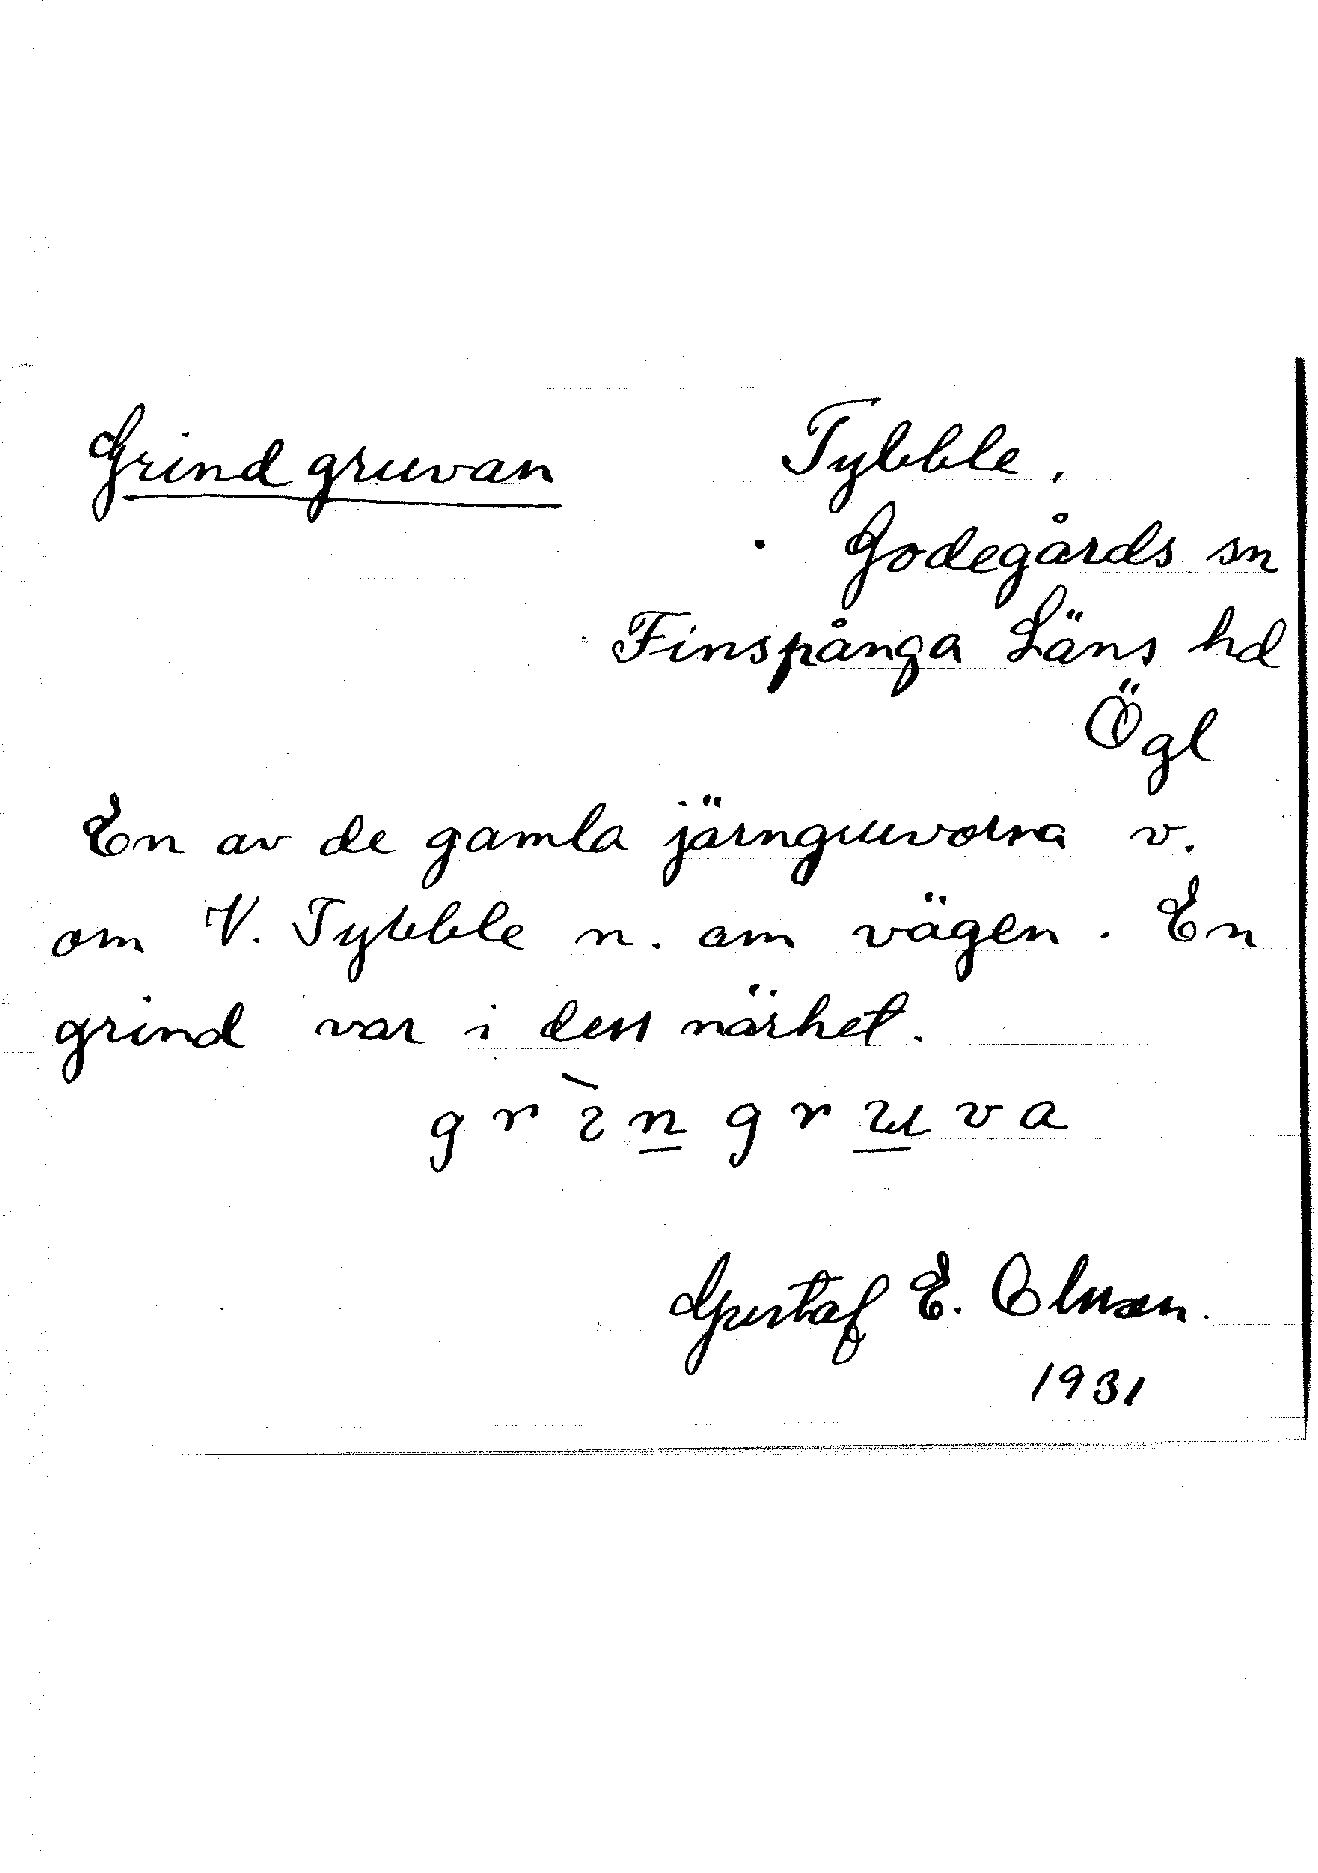 Grindgruvan
Tybble.
Godegårds sn
Finspånga Läns hd
Ögl
En av de gamla järngruvorna v.
om V. Tybble n. om vägen. En
grind var i dess närhet.
grìn̲gru̲va
Gustaf E. Olsson.
1931